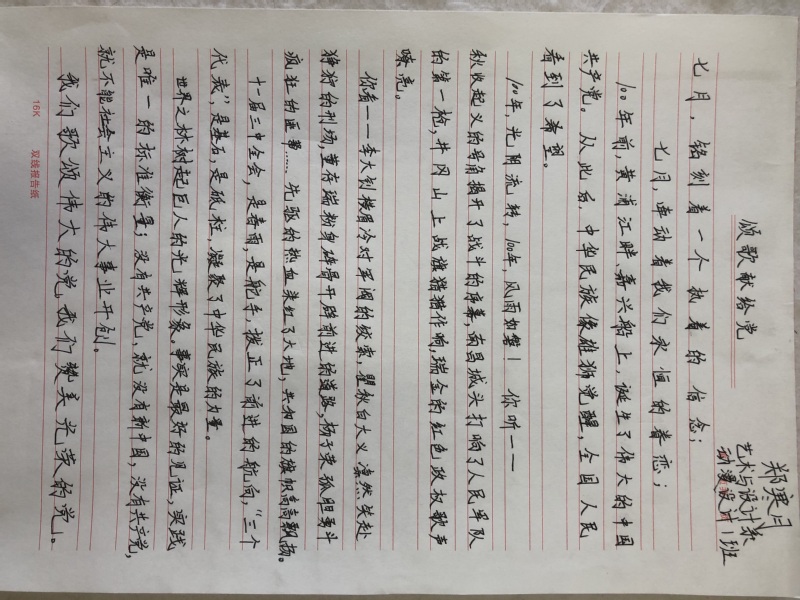 郑寒月
艺术与设计系
动漫设计1班
颂歌献给党
七月，铭刻着一个执着的信念；
七月，牵动着我们永恒的眷恋；
100年前，黄浦江畔，嘉兴船上，诞生了伟大的中国
共产党。从此后，中华民族像雄狮觉醒，全国人民
看到了希望。
100年，光阴流转，100年，风雨如磐！你听——
秋收起义的号角揭开了战斗的序幕，南昌城头打响了人民军队
的第一枪，井冈山上战旗猎猎作响，瑞金的红色政权歌声
嘹亮。
你看——李大钊横眉冷对军阀的绞索，瞿秋白大义凛然笑赴
狰狞的刑场，董存瑞粉身碎骨开辟前进的道路，杨子荣孤胆勇斗
疯狂的匪帮……先驱的热血染红了大地，共和国的旗帜高高飘扬。
十一届三中全会，是春雨，是舵手，拨正了前进的航向，“三个
代表”，是基石，是砥柱，凝聚了中华民族的力量。
世界之林树起巨人的光辉形象。事实是最好的见证，实践
是唯一的标准衡量；没有共产党，就没有新中国，没有共产党，
就不能社会主义的伟大事业开创。
我们歌颂伟大的党，我们赞美光荣的党。
16K 双线报告纸